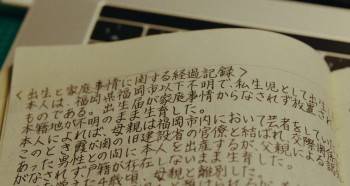 <出生と家庭事情に関する経過記録>
本人は、福岡県福岡市以下不明で、私生児として出生し
ものである。出生届が家庭事情からなされず放置され
本籍地が不明のまま生育した。
本人によれば、母親は福岡市内において芸者をしてい
このとき霞が関の旧建設省の官僚と結ばれ、交際関係に
あった男性との間に本人を出産するが、父親による認
がなされず戸籍が存在しないまま生育した。
歳頃、母親と離別した。